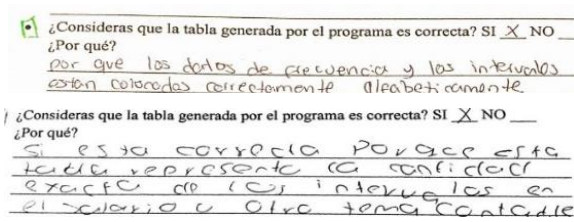 ¿Consideras que la tabla generada por el programa es correcta? SI X NO ___
¿Por qué?
por que los datos de frecuencia y los intervalos
estan colocados correctamente alfabeticamente
¿Consideras que la tabla generada por el programa es correcta? SI X NO ___
¿Por qué?
Si esta correcta Porque esta
tabla representa la cantidad
exacta de los intervalos en
el salario u otra toma contable